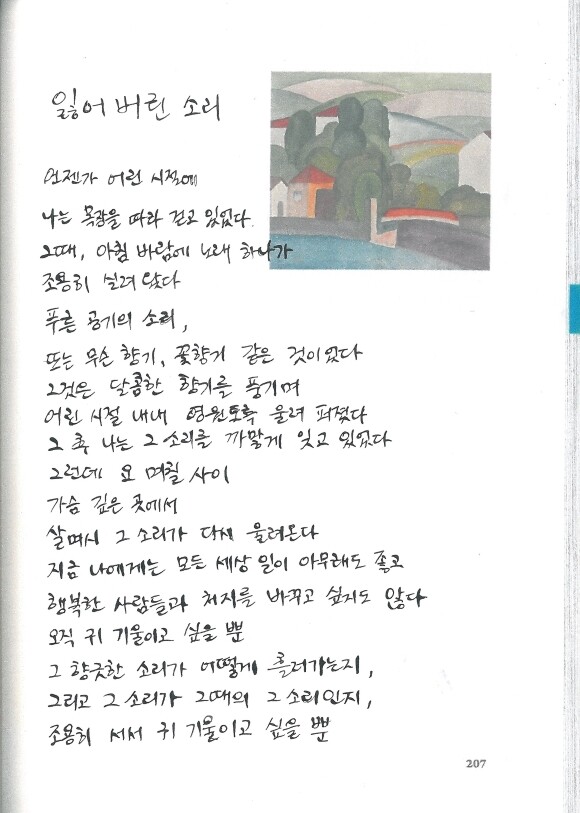 잃어버린 소리
언젠가 어린 시절에
나는 목장을 따라 걷고 있었다.
그때, 아침 바람에 노래 하나가
조용히 실려 왔다
푸른 공기의 소리,
또는 무슨 향기, 꽃향기 같은 것이었다
그것은 달콤한 향기를 풍기며
어린 시절 내내 영원토록 울려 퍼졌다
그 후 나는 그 소리를 까맣게 잊고 있었다
그런데 요 며칠 사이
가슴 깊은 곳에서
살며시 그 소리가 다시 울려온다
지금 나에게는 모든 세상 일이 아무래도 좋고
행복한 사람들과 처지를 바꾸고 싶지도 않다
오직 귀 기울이고 싶을 뿐
그 향긋한 소리가 어떻게 흘러가는지,
그리고 그 소리가 그때의 그 소리인지,
조용히 서서 귀 기울이고 싶을 뿐
207